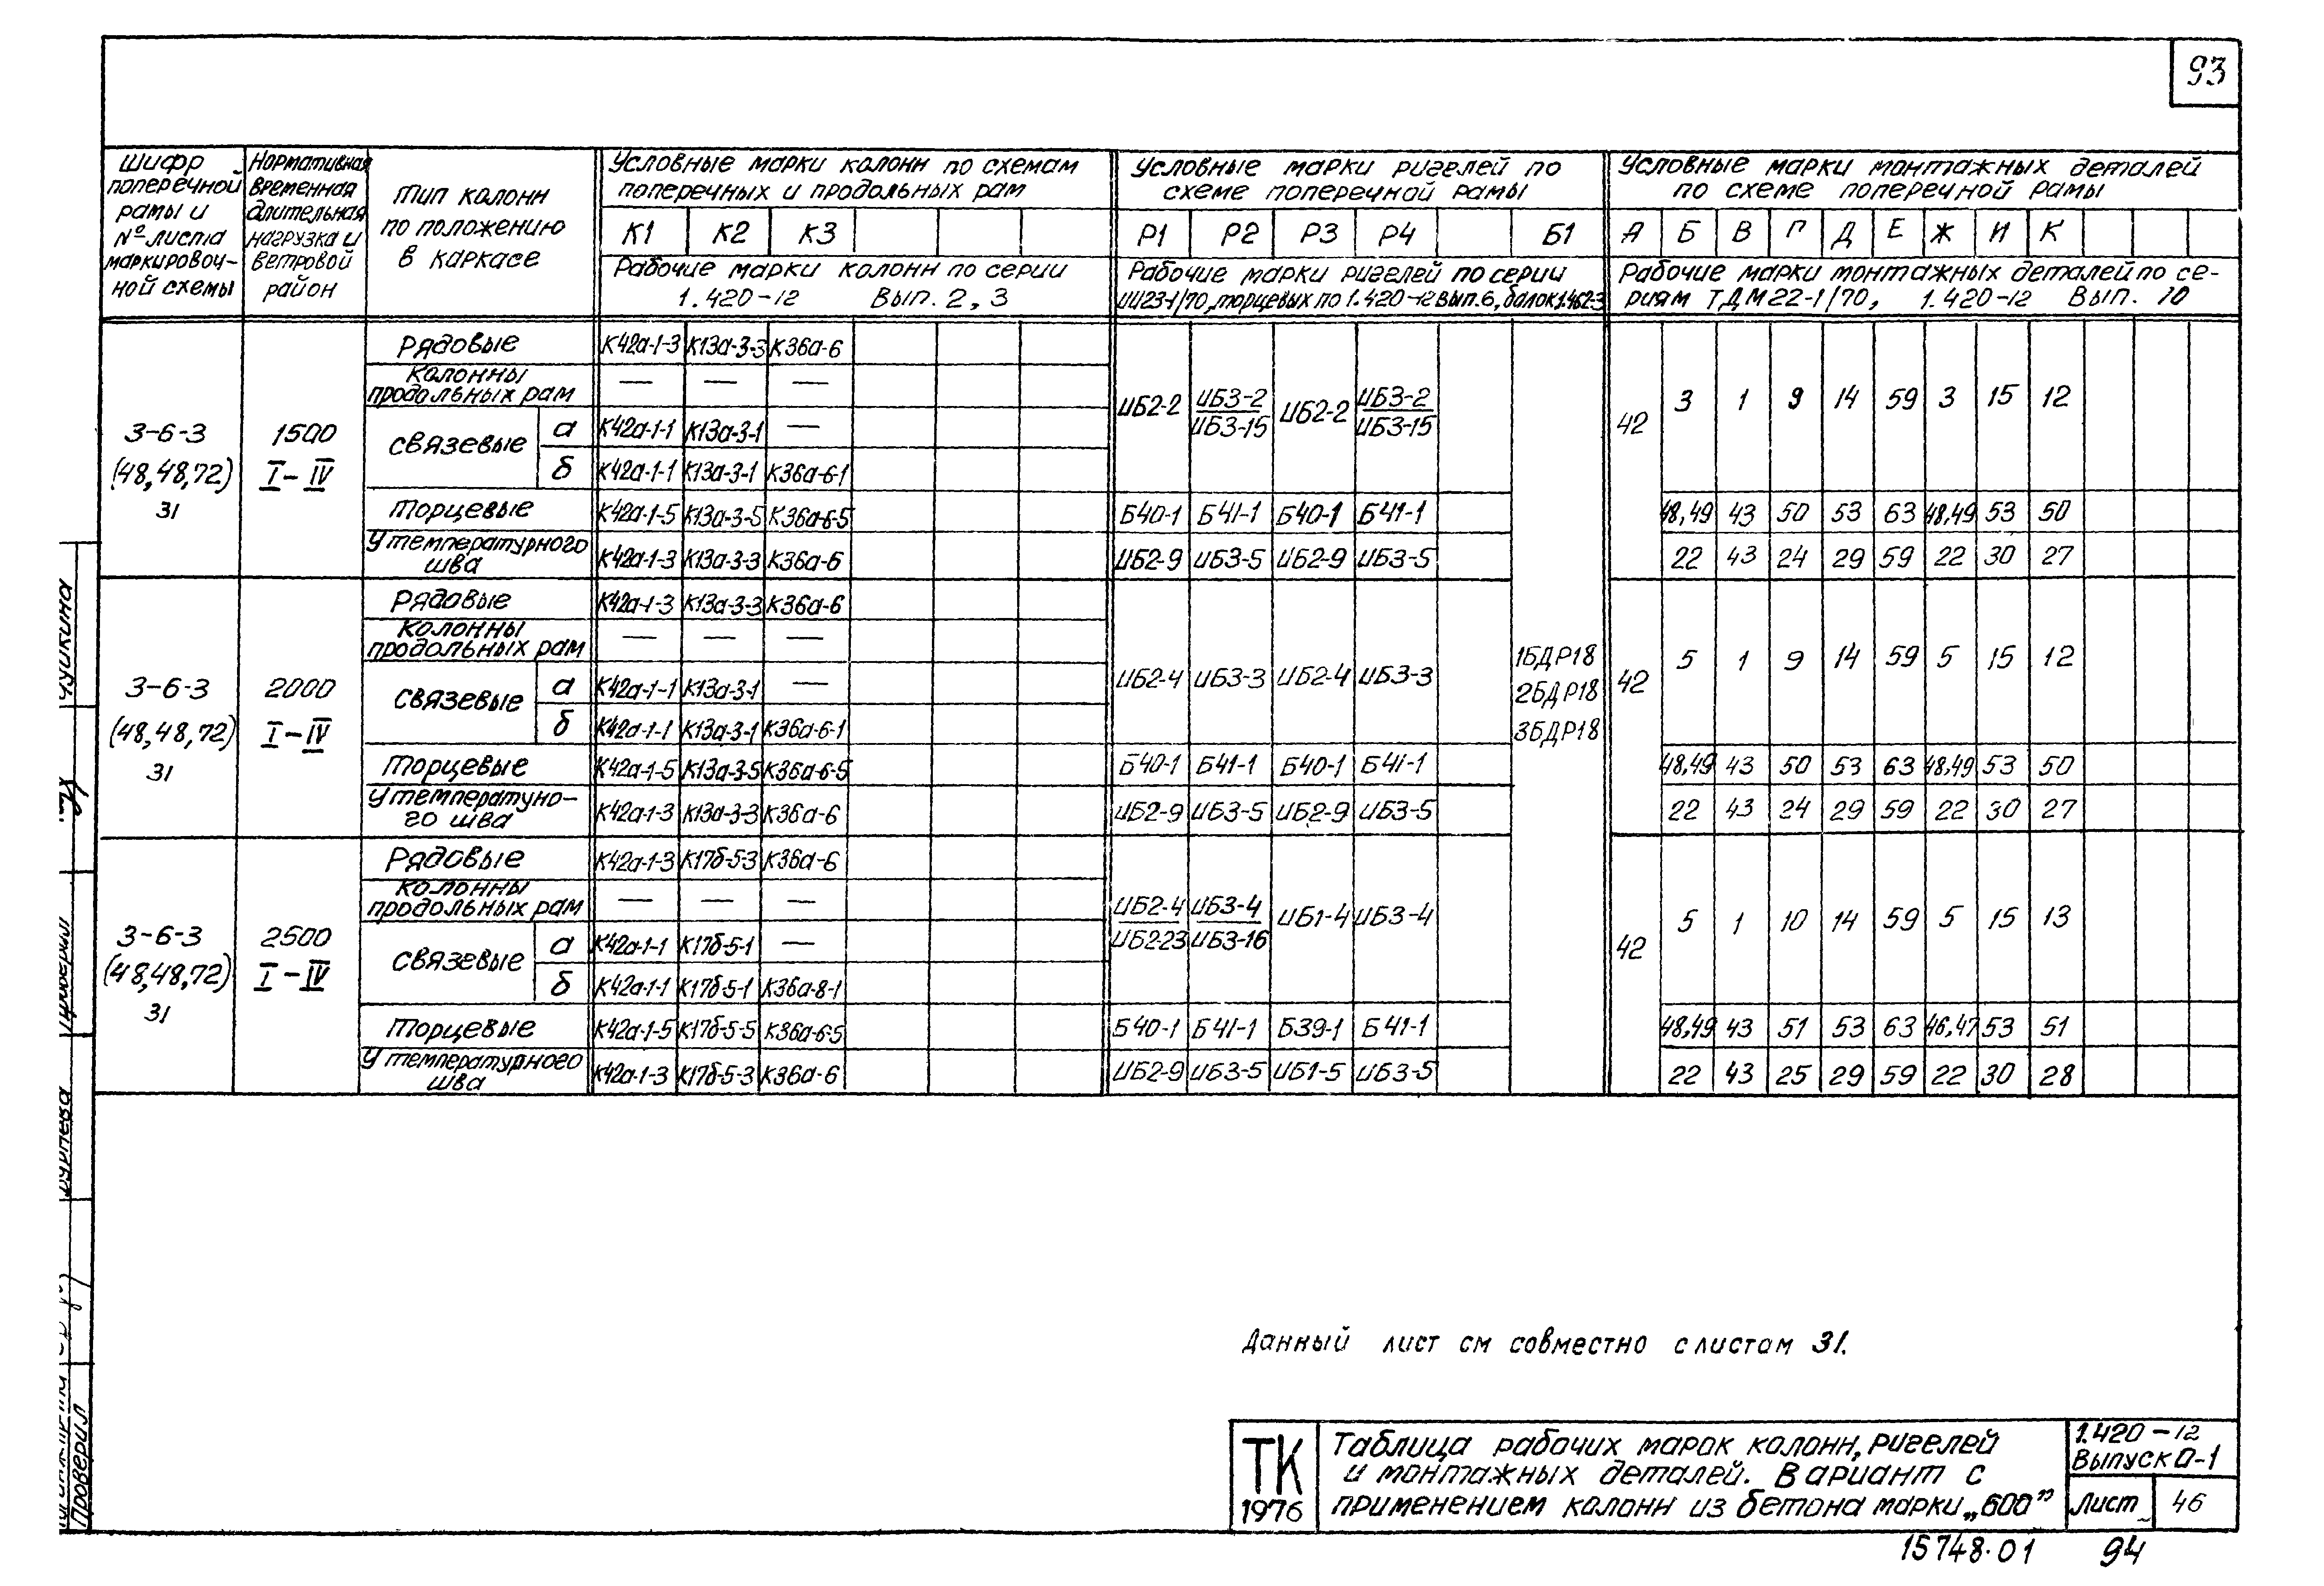 93
Шифр поперечной рамы и № листа маркировоч-ной схемы
Нормативная временная длительная нагрузка и ветровой район
Тип колонн по положению в каркасе
Условные марки колонн по схемам поперечных и продольных рам
К1 К2 К3
Рабочие марки колонн по серии 1.420-12 Вып. 2, 3
Условные марки ригелей по схеме поперечной рамы
Р1 Р2 Р3 Р4 Б1
Рабочие марки ригелей по серии ИИ23-1/70, торцевых по 1.420-12 вып. 6, балок 1.462-3
Условные марки монтажных деталей по схеме поперечной рамы
А Б В Г Д Е Ж И К
Рабочие марки монтажных деталей по се-риям ТДМ22-1/70, 1.420-12 Вып. 10
3-6-3 (48,48,72) 31
1500 I-IV
Рядовые К42а-1-3 К13а-3-3 К36а-6
Колонны продольных рам — — —
Связевые а К42а-1-1 К13а-3-1 —
б К42а-1-1 К13а-3-1 К36а-6-1
ИБ2-2 ИБ3-2 ИБ3-15 ИБ2-2 ИБ3-2 ИБ3-15
42 3 1 9 14 59 3 15 12
Торцевые К42а-1-5 К13а-3-5 К36а-6-5 Б40-1 Б41-1 Б40-1 Б41-1 48,49 43 50 53 63 48,49 53 50
У температурного шва К42а-1-3 К13а-3-3 К36а-6 ИБ2-9 ИБ3-5 ИБ2-9 ИБ3-5 22 43 24 29 59 22 30 27
3-6-3 (48,48,72) 31
2000 I-IV
Рядовые К42а-1-3 К13а-3-3 К36а-6
Колонны продольных рам — — —
Связевые а К42а-1-1 К13а-3-1 —
б К42а-1-1 К13а-3-1 К36а-6-1
ИБ2-4 ИБ3-3 ИБ2-4 ИБ3-3
1БДР18
2БДР18
3БДР18
42 5 1 9 14 59 5 15 12
Торцевые К42а-1-5 К13а-3-5 К36а-6-5 Б40-1 Б41-1 Б40-1 Б41-1 48,49 43 50 53 63 48,49 53 50
У температуно-го шва К42а-1-3 К13а-3-3 К36а-6 ИБ2-9 ИБ3-5 ИБ2-9 ИБ3-5 22 43 24 29 59 22 30 27
3-6-3 (48,48,72) 31
2500 I-IV
Рядовые К42а-1-3 К17б-5-3 К36а-6
Колонны продольных рам — — —
Связевые а К42а-1-1 К17б-5-1 —
б К42а-1-1 К17б-5-1 К36а-8-1
ИБ2-4 ИБ2-23 ИБ3-4 ИБ3-16 ИБ1-4 ИБ3-4
42 5 1 10 14 59 5 15 13
Торцевые К42а-1-5 К17б-5-5 К36а-6-5 Б40-1 Б41-1 Б39-1 Б41-1 48,49 43 51 53 63 46,47 53 51
У температурного шва К42а-1-3 К17б-5-3 К36а-6 ИБ2-9 ИБ3-5 ИБ1-5 ИБ3-5 22 43 25 29 59 22 30 28
Данный лист см совместно с листом 31.
ТК
1976
Таблица рабочих марок колонн, ригелей
и монтажных деталей. Вариант с
применением колонн из бетона марки „600”
1.420-12
Выпуск 0-1
Лист 46
15748·01 94
Проверил